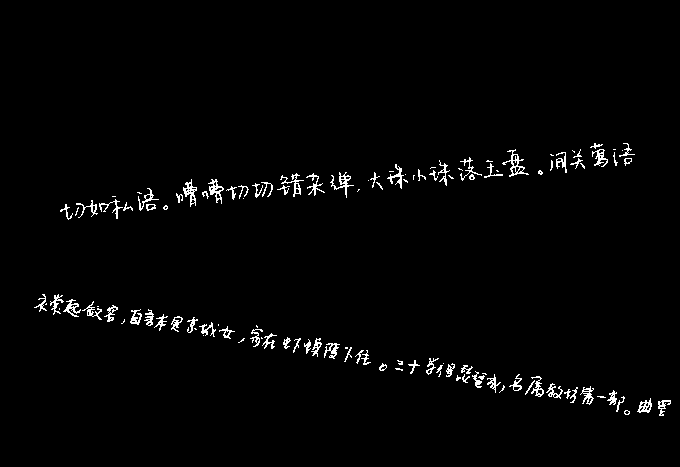 切如私语。嘈嘈切切错杂弹,大珠小珠落玉盘。间关莺语
衣裳起敛容,自言本是京城女,家在虾蟆陵下住。三十学得琵琶成,名属教坊第一部。曲罢